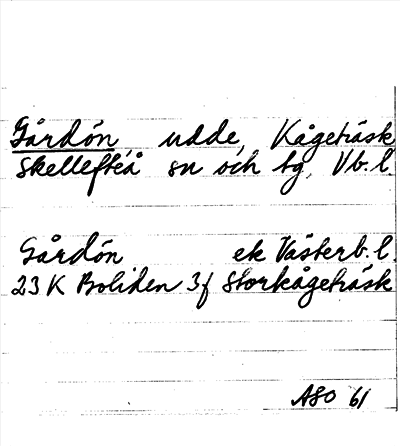 Gårdön udde, Kågeträsk
Skellefteå sn och tg, Vb. l.
Gårdön ek Västerb. l.
23 K Boliden 3f Storkågeträsk
ASO 61